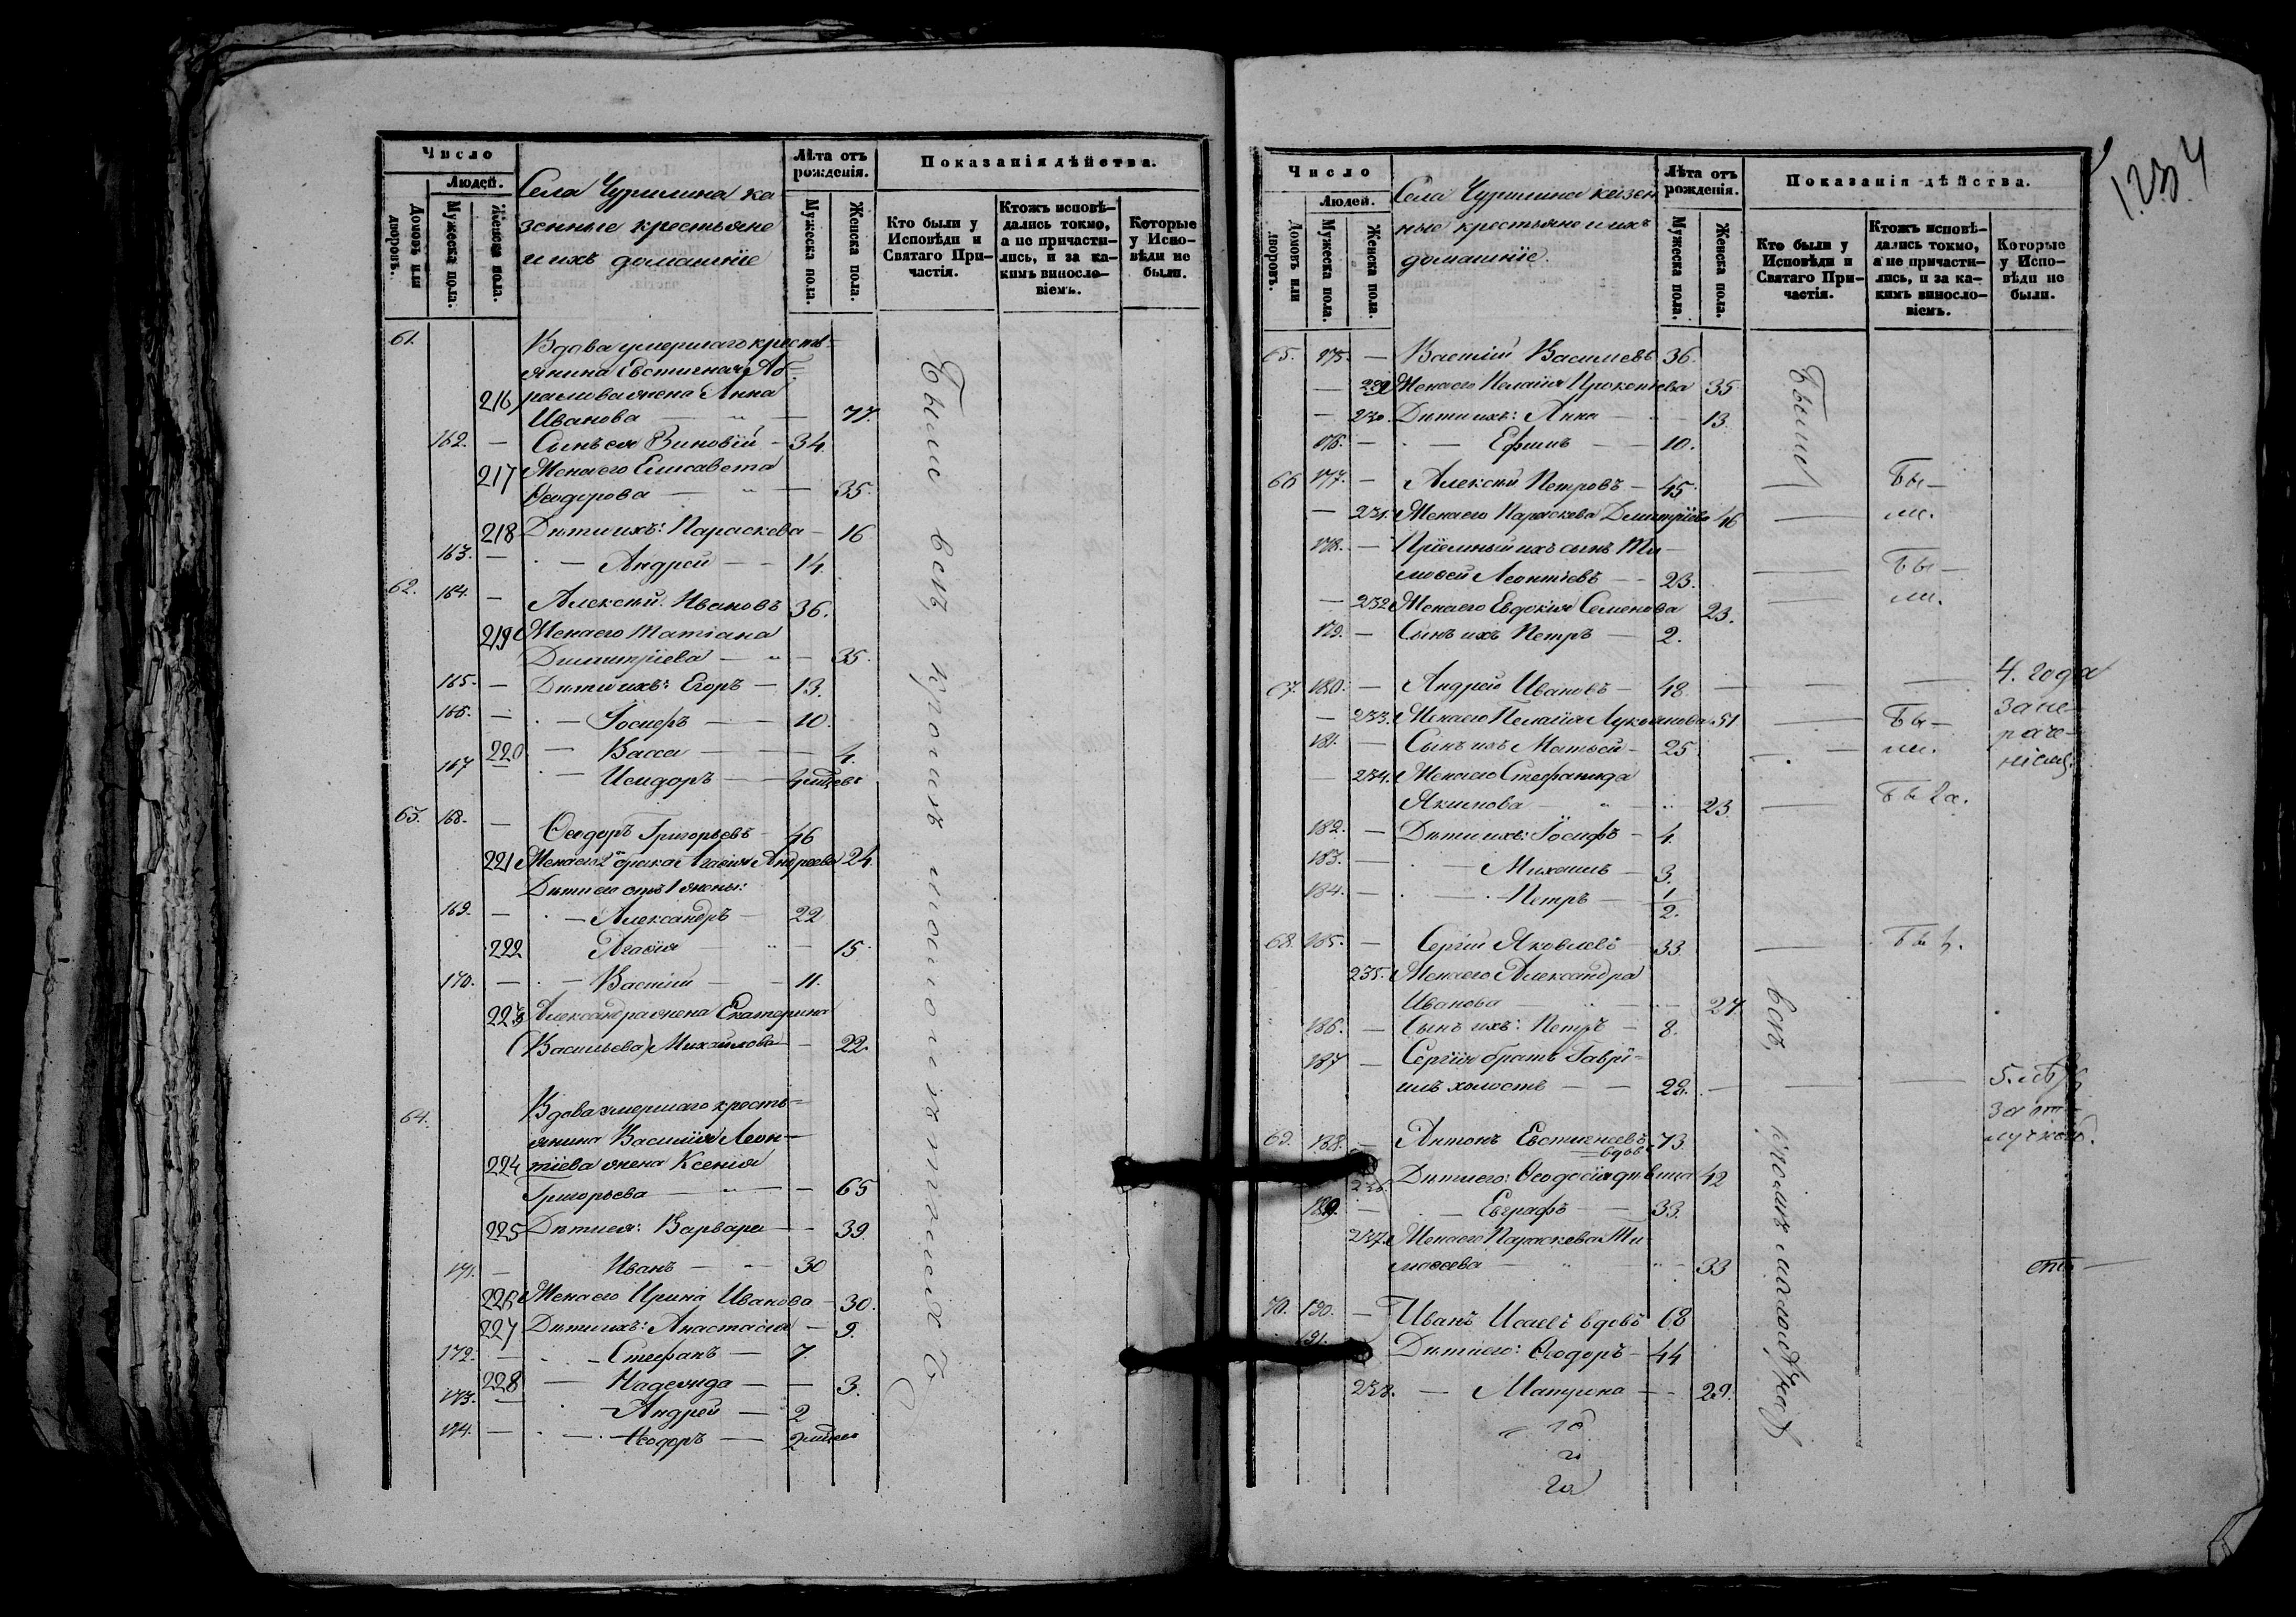 Число
Людей.
Домовъ или дворовъ.
Мужеска пола.
Женска пола.
Села Чурилина ка
зенные крестьяне
и ихъ домашніе
Лѣта отъ рожденія.
Мужеска пола.
Женска пола.
Показанія дѣйства.
Кто были у Исповѣди и Святаго Причастія.
Ктожъ исповѣдались токмо, а не причастились, и за какимъ винословіемъ.
Которые у Исповѣди не были.
61. Вдова умершаго кресть-
янина Евстигнея Аб-
216 рамова жена Анна
Иванова — " — 77.
162. — Сынъ ея Зиновій — 34.
217 Жена его Елисавета
Ѳеодорова — " — 35.
218 Дѣти ихъ: Параскева — 16
163. — - — Андрей — - 14.
62. 164. — Алексѣй Ивановъ 36.
219 Жена его Татіана
Димитріева — " — 35.
165. — Дѣти ихъ: Егоръ — 13.
166. — - — Іосифъ — — 10.
220 — Васса — — — 4.
167 — - — Исидоръ — —
63. 168. — Ѳеодоръ Григорьевъ — 46
221 Жена его 2 брака Агаѳія Андреева 24.
Дѣти его отъ 1 жены:
169. — - — Александръ — 22
222 Агаѳія — " — 15.
170. — - — Васілій — — 11.
223 Александра жена Екатерина
(Васильева) Михайлова — 22.
64. Вдова умершаго кресть-
янина Василія Леон-
224 тіева жена Ксенія
Григорьева — " — 65
225 Дѣти ея: Варвара — — 39.
171. — Иванъ — — 30
226 Жена его Ирина Иванова — 30.
227 Дѣти ихъ: Анастасія — 9.
172. — - — Стефанъ — 7.
228 — Надежда — — 3.
173. — - Андрей — 2
174. — - — Ѳеодоръ —
Были всѣ кромѣ малолѣтнихъ
1234
Число
Людей.
Домовъ или дворовъ.
Мужеска пола.
Женска пола.
Села Чурилина казен
ные крестьяне и ихъ
домашніе.
Лѣта отъ рожденія.
Мужеска пола.
Женска пола.
Показанія дѣйства.
Кто были у Исповѣди и Святаго Причастія.
Ктожъ исповѣдались токмо, а не причастились, и за какимъ винословіемъ.
Которые у Исповѣди не были.
65. 175. — Васілій Васильевъ 36.
— 229 Жена его Пелагія Прокопіева 35
— 230. Дѣти ихъ: Анна — - 13.
176. — - — Ефимъ — — 10.
66 177. — Алексѣй Петровъ — 45. — Бы-
— 231. Жена его Параскева Димитріева 46 — ли.
178. — Пріемный ихъ сынъ Ти-
моѳей Леонтіевъ — — 23. — Бы-
— 232. Жена его Евдокія Семенова 23. — ли.
179. — Сынъ ихъ Петръ — 2.
67. 180. — Андрей Ивановъ — 48. — — 4. года
— 233. Жена его Пелагія Лукьянова 51 — Бы- за не-
181. — Сынъ ихъ Матвей — 25. — ли. раче-
— 234. Жена его Стефанида ніемъ.
Якимова — " — 23 — Была.
182. — Дѣти ихъ: Іосифъ — 4.
183. — - — Михаилъ — 3.
184. — - — Петръ — 1/2.
68. 185. — Сергій Яковлевъ 33. — Былъ.
235. Жена его Александра
Иванова — " — 27.
186. — Сынъ ихъ: Петръ — 8.
187 — Сергія братъ Гаврі-
илъ холостъ — — 28. — — 5. лѣтъ
за от-
лучкою.
69. 188. — Антонъ Евстигнеевъ 73.
вдов
236. Дѣти его: Ѳеодосія дѣвица 42
189. — - — Евграфъ — — 33.
237. Жена его Параскева Ти-
моѳеева — " — " — 33
70. 190. — Иванъ Исаевъ вдовъ 68
191. Дѣти его: Ѳеодоръ — 44
238. — Матрена — — 29.
Были всѣ, кромѣ малолѣтнихъ